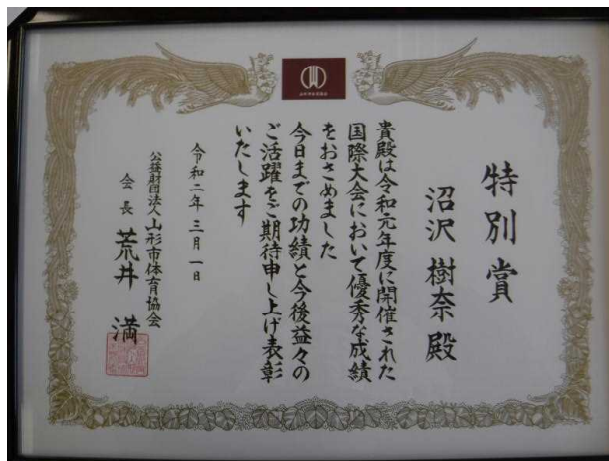 特別賞
沼沢 樹奈 殿
貴殿は令和元年度に開催された
国際大会において優秀な成績
をおさめました
今日までの功績と今後益々の
ご活躍をご期待申し上げ表彰
いたします
令和二年三月一日
公益財団法人山形市体育協会
会長 荒井 満